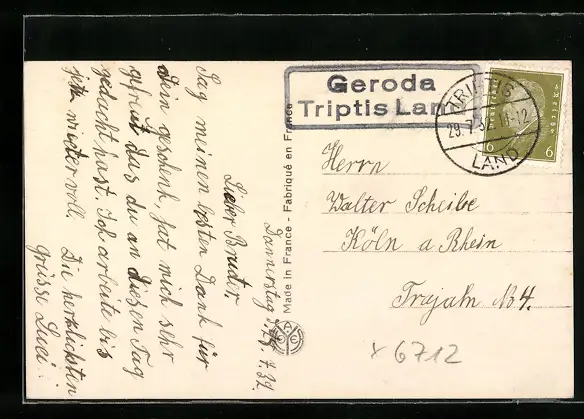 Donnerstag d. 28.7.32.
Lieber Bruder.
Sag meinen besten Dank für
Dein geschenk, hat mich sehr
gefreut das du an diesen Tag
gedacht hast. Ich arbeite bis
jetz wieder voll. Die herzlichsten
Grüsse Luci.
Made in France - Fabriqué en France
Geroda
Triptis Land
TRIPTIS
29.7.32. 11-12
LAND
Deutsches Reich
6 6
Herrn
Walter Scheibe
Köln a Rhein
Trajan N. 4.
x 6712